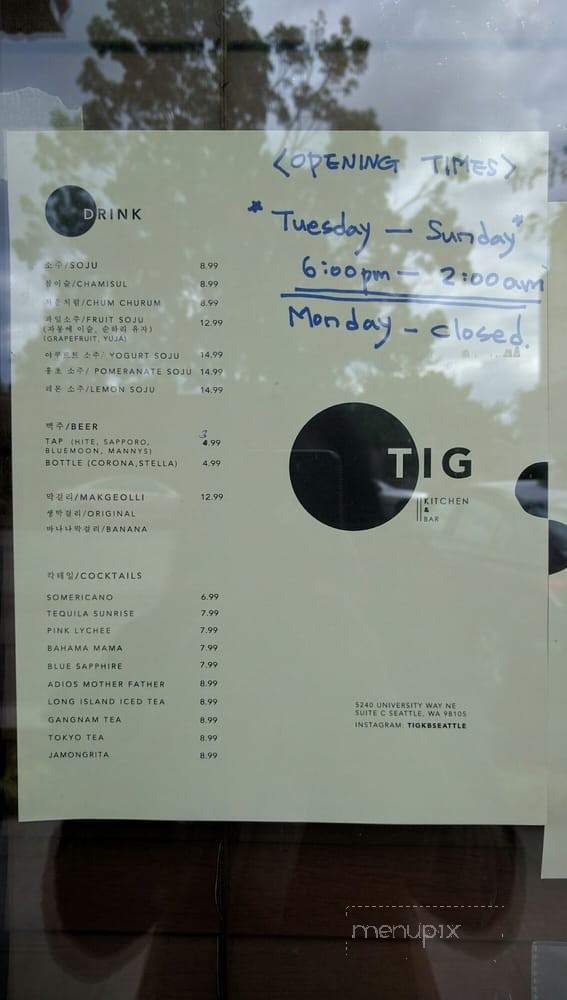 <OPENING TIMES>
* Tuesday — Sunday *
6:00pm — 2:00am
Monday - closed.
DRINK
소주/SOJU 8.99
참이슬/CHAMISUL 8.99
처음처럼/CHUM CHURUM 8.99
과일소주/FRUIT SOJU 12.99
(자몽에 이슬, 순하리 유자)
(GRAPEFRUIT, YUJA)
야쿠르트 소주/ YOGURT SOJU 14.99
홍초 소주/ POMERANATE SOJU 14.99
레몬 소주/LEMON SOJU 14.99
맥주/BEER
TAP (HITE, SAPPORO, 3.99
BLUEMOON, MANNYS)
BOTTLE (CORONA,STELLA) 4.99
막걸리/MAKGEOLLI 12.99
생막걸리/ORIGINAL
바나나막걸리/BANANA
칵테일/COCKTAILS
SOMERICANO 6.99
TEQUILA SUNRISE 7.99
PINK LYCHEE 7.99
BAHAMA MAMA 7.99
BLUE SAPPHIRE 7.99
ADIOS MOTHER FATHER 8.99
LONG ISLAND ICED TEA 8.99
GANGNAM TEA 8.99
TOKYO TEA 8.99
JAMONGRITA 8.99
TIG
KITCHEN
&
BAR
5240 UNIVERSITY WAY NE
SUITE C SEATTLE, WA 98105
INSTAGRAM: TIGKBSEATTLE
menupix